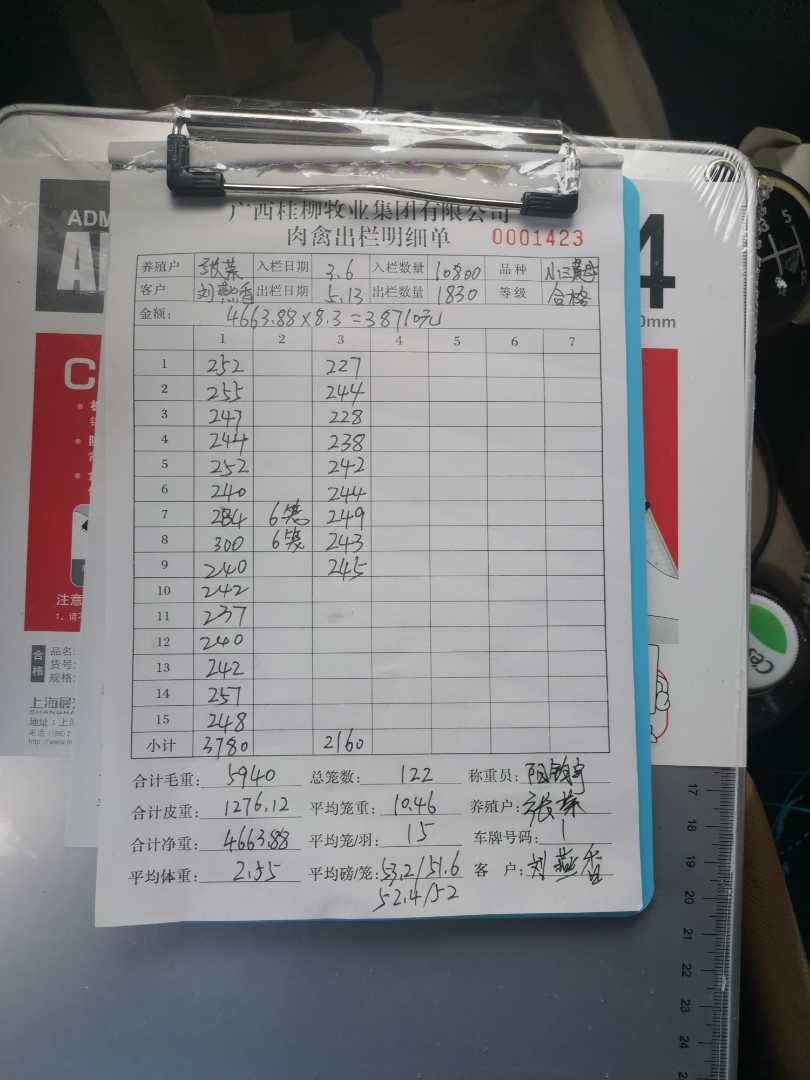 广西桂柳牧业集团有限公司
肉禽出栏明细单 0001423
养殖户 张荣 入栏日期 3.6 入栏数量 10800 品种
客户 刘燕香 出栏日期 5.13 出栏数量 1830 等级 合格
金额: 4663.88×8.3=38710元
1 2 3 4 5 6 7
1 252 227
2 255 244
3 247 228
4 244 238
5 252 242
6 240 244
7 284 6笼 249
8 300 6笼 243
9 240 245
10 242
11 237
12 240
13 242
14 257
15 248
小计 3780 2160
合计毛重: 5940 总笼数: 122 称重员:
合计皮重: 1276.12 平均笼重: 10.46 养殖户: 张荣
合计净重: 4663.88 平均笼/羽: 15 车牌号码: 1
平均体重: 2.55 平均磅/笼: 53.2/51.6 客户: 刘燕香
52.4/52
ADM
C
4
0mm
注意
合格
品名:
货号:
规格:
上海晨
SHANGHA
地址:上海
http://www.m
17
18
19
20
21
22
23
24
5